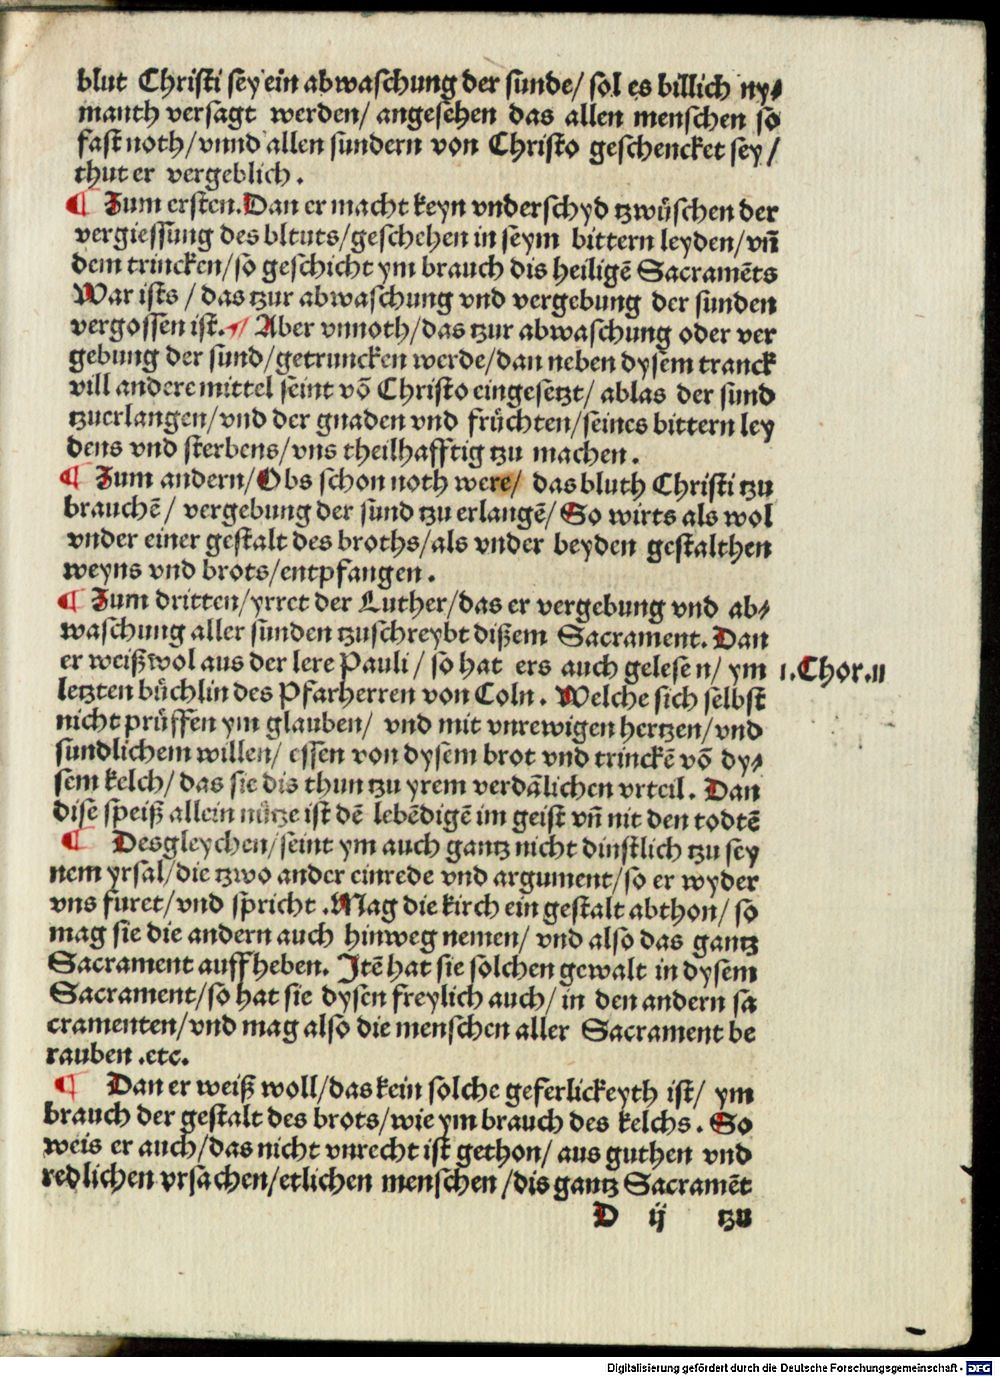 blut Christi sey ein abwaschung der sunde/ sol es billich ny⸗
manth versagt werden/ angesehen das allen menschen so
fast noth/ vnnd allen sundern von Christo geschencket sey/
thut er vergeblich.
¶ Zum ersten. Dan er macht keyn vnderschyd tzwüschen der
vergiessung des bltuts/ geschehen in seym bittern leyden/ vñ
dem trincken/ so geschicht ym brauch dis heiligē Sacramēts
War ists / das tzur abwaschung vnd vergebung der sunden
vergossen ist. ¶ Aber vnnoth/ das tzur abwaschung oder ver
gebung der sund/ getruncken werde/ dan neben dysem tranck
vill andere mittel seint vō Christo eingesetzt/ ablas der sund
tzuerlangen/ vnd der gnaden vnd früchten/ seines bittern ley
dens vnd sterbens/ vns theilhafftig tzu machen.
¶ Zum andern/ Obs schon noth were/ das bluth Christi tzu
brauchē/ vergebung der sund tzu erlangē/ So wirts als wol
vnder einer gestalt des broths/ als vnder beyden gestalthen
weyns vnd brots/ entpfangen.
¶ Zum dritten/ yrret der Luther/ das er vergebung vnd ab⸗
waschung aller sunden tzuschreybt dißem Sacrament. Dan
er weiß wol aus der lere Pauli/ so hat ers auch gelesen/ ym 1. Chor. 11
letzten büchlin des Pfarherren von Coln. Welche sich selbst
nicht prüffen ym glauben/ vnd mit vnrewigen hertzen/ vnd
sundlichem willen/ essen von dysem brot vnd trinckē vō dy⸗
sem kelch/ das sie dis thun tzu yrem verdālichen vrteil. Dan
dise speiß allein nütze ist dē lebēdigē im geist vñ nit den todtē
¶ Desgleychen/ seint ym auch gantz nicht dinstlich tzu sey
nem yrsal/ die tzwo ander einrede vnd argument/ so er wyder
vns furet/ vnd spricht. Mag die kirch ein gestalt abthon/ so
mag sie die andern auch hinweg nemen/ vnd also das gantz
Sacrament auffheben. Jtē hat sie solchen gewalt in dysem
Sacrament/ so hat sie dysen freylich auch/ in den andern sa
cramenten/ vnd mag also die menschen aller Sacrament be
rauben .etc.
¶ Dan er weiß woll/ das kein solche geferlickeyth ist/ ym
brauch der gestalt des brots/ wie ym brauch des kelchs. So
weis er auch/ das nicht vnrecht ist gethon/ aus guthen vnd
redlichen vrsachen/ etlichen menschen/ dis gantz Sacramēt
D ij tzu
Digitalisierung gefördert durch die Deutsche Forschungsgemeinschaft - DFG